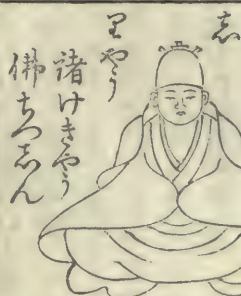 志
里やう
諸けきやう
佛ちつ志ん